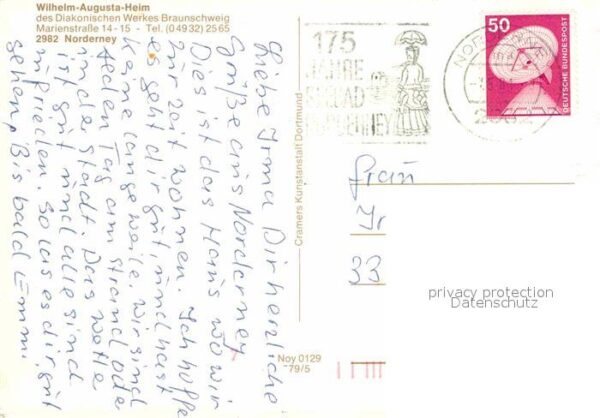 Wilhelm-Augusta-Heim
des Diakonischen Werkes Braunschweig
Marienstraße 14-15 - Tel. (04932) 2565
2982 Norderney
Liebe Irma Dir herzliche
Grüße aus Norderney
Dies ist das Haus wo wir
zur zeit wohnen. Ich hoffe
es geht dir gut, und hast
keine langeweile. wir sind
jeden Tag am strand oder
in der stadt. Das wetter
ist gut und alle sind
zufrieden. So las es dir gut
gehen, Bis bald Emmi
Cramers Kunstanstalt Dortmund
Noy 0129
79/5
175
JAHRE
SEEBAD
NORDERNEY
50
DEUTSCHE BUNDESPOST
Frau
Ir
33
privacy protection
Datenschutz